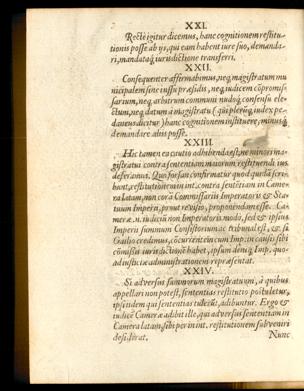 XXI.
Rectè igitur dicemus, hanc cognitionem restitu-
tionis posse ab ijs, qui eam habent iure suo, demanda-
ri, mandataq́ iurisdictione transferri.
XXII.
Consequenter affirmabimus, neq; magistratum mu
nicipalem sine iussu præsidis, neq; iudicem cōpromis-
sarium, neq; arbitrum communi nudoq́ consensu ele-
ctum, neq; datum à magistratu (qui plerūq; iudex pe-
daneus dicitur) hanc cognitionem instituere, minusq́
demandare alijs posse.
XXIII.
Hic tamen ea cautio adhibenda est, ne minori ma-
gistratui contra sententiam maiorum restituendi ius
deferamus. Quo forsan confirmatur quod quidā scri-
bunt, restitutionem in int. contra sentētiam in Came-
ra latam, non corā Commissarijs Imperatoris & Sta-
tuum Imperij, prout revisio, proponendam esse. Ca-
meræ n. iudiciū non Imperatoris modo, sed & ipsius
Imperij summum Consistorium ac tribunal est, &, si
Gailio credimus, cōcurrit etiam cum Imp. in causis sibi
cōmissis iurisdictionē habet, ipsum deniq́; Imp. quo-
ad iustitiæ administrationem repræsentat.
XXIV.
Si adversus summorum magistratuum, à quibus
appellari non potest, sententias restitutio postuletur,
ipsi idem qui sententias tulerūt, adibuntur. Ergo &
iudicē Cameræ adibit ille, qui adversus sententiam in
Camera latam, sibi per in int. restitutionem subveniri
desiderat.
Nunc